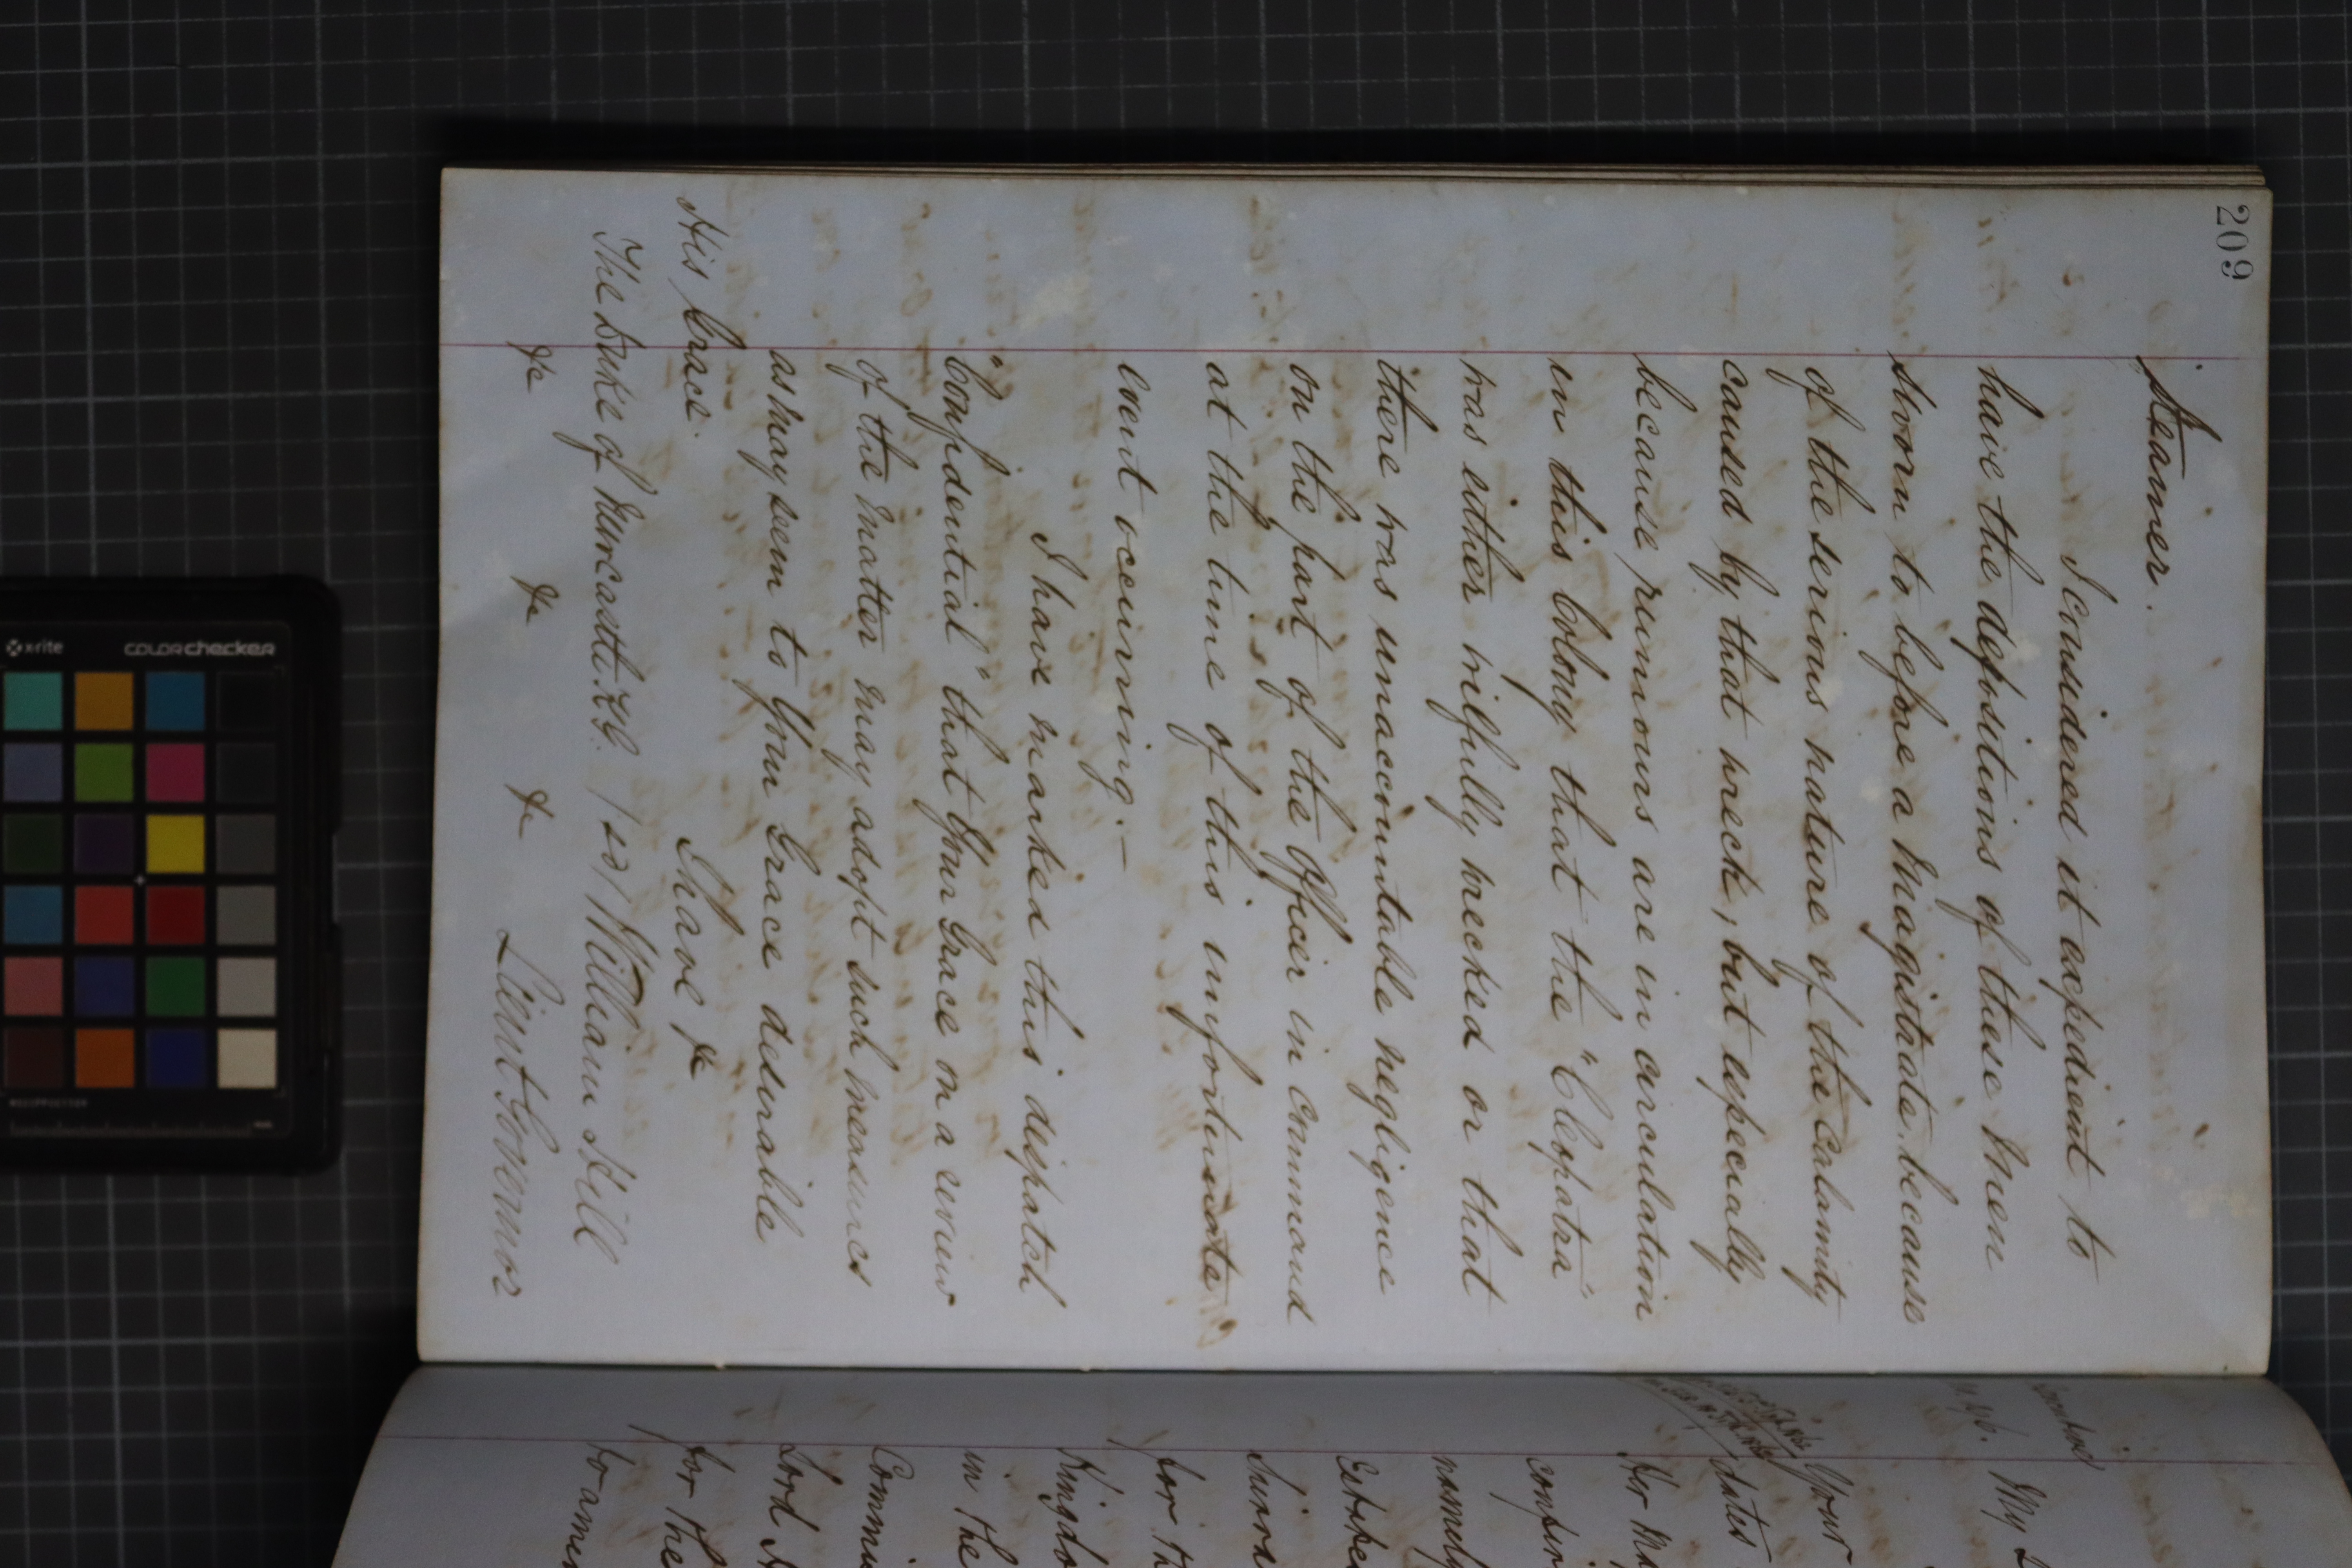 209
Steamer.
I considered it expedient to
have the depositions of these men
sworn to before a Magistrate, because
of the serious nature of the Calamity
caused by that wreck; but especially
because rumours are in circulation
in this Colony that the "Cleopatra"
was either wilfully wrecked or that
there was unaccountable negligence
on the part of the Officer in Command
at the time of this unfortunate
event occurring.—
I have marked this despatch
"Confidential" that Your Grace on a review
of the matter may adopt such measures
as may seem to Your Grace desirable
I have &c
His Grace.
The Duke of Newcastle K.G. /sd/ William Hill
&c &c &c Lieut Governor
My
Your
dates
Her Ma
confer
namely
for th
Kingdo
in the
Commi
Lord
for the
to amen
x-rite
colorchecker